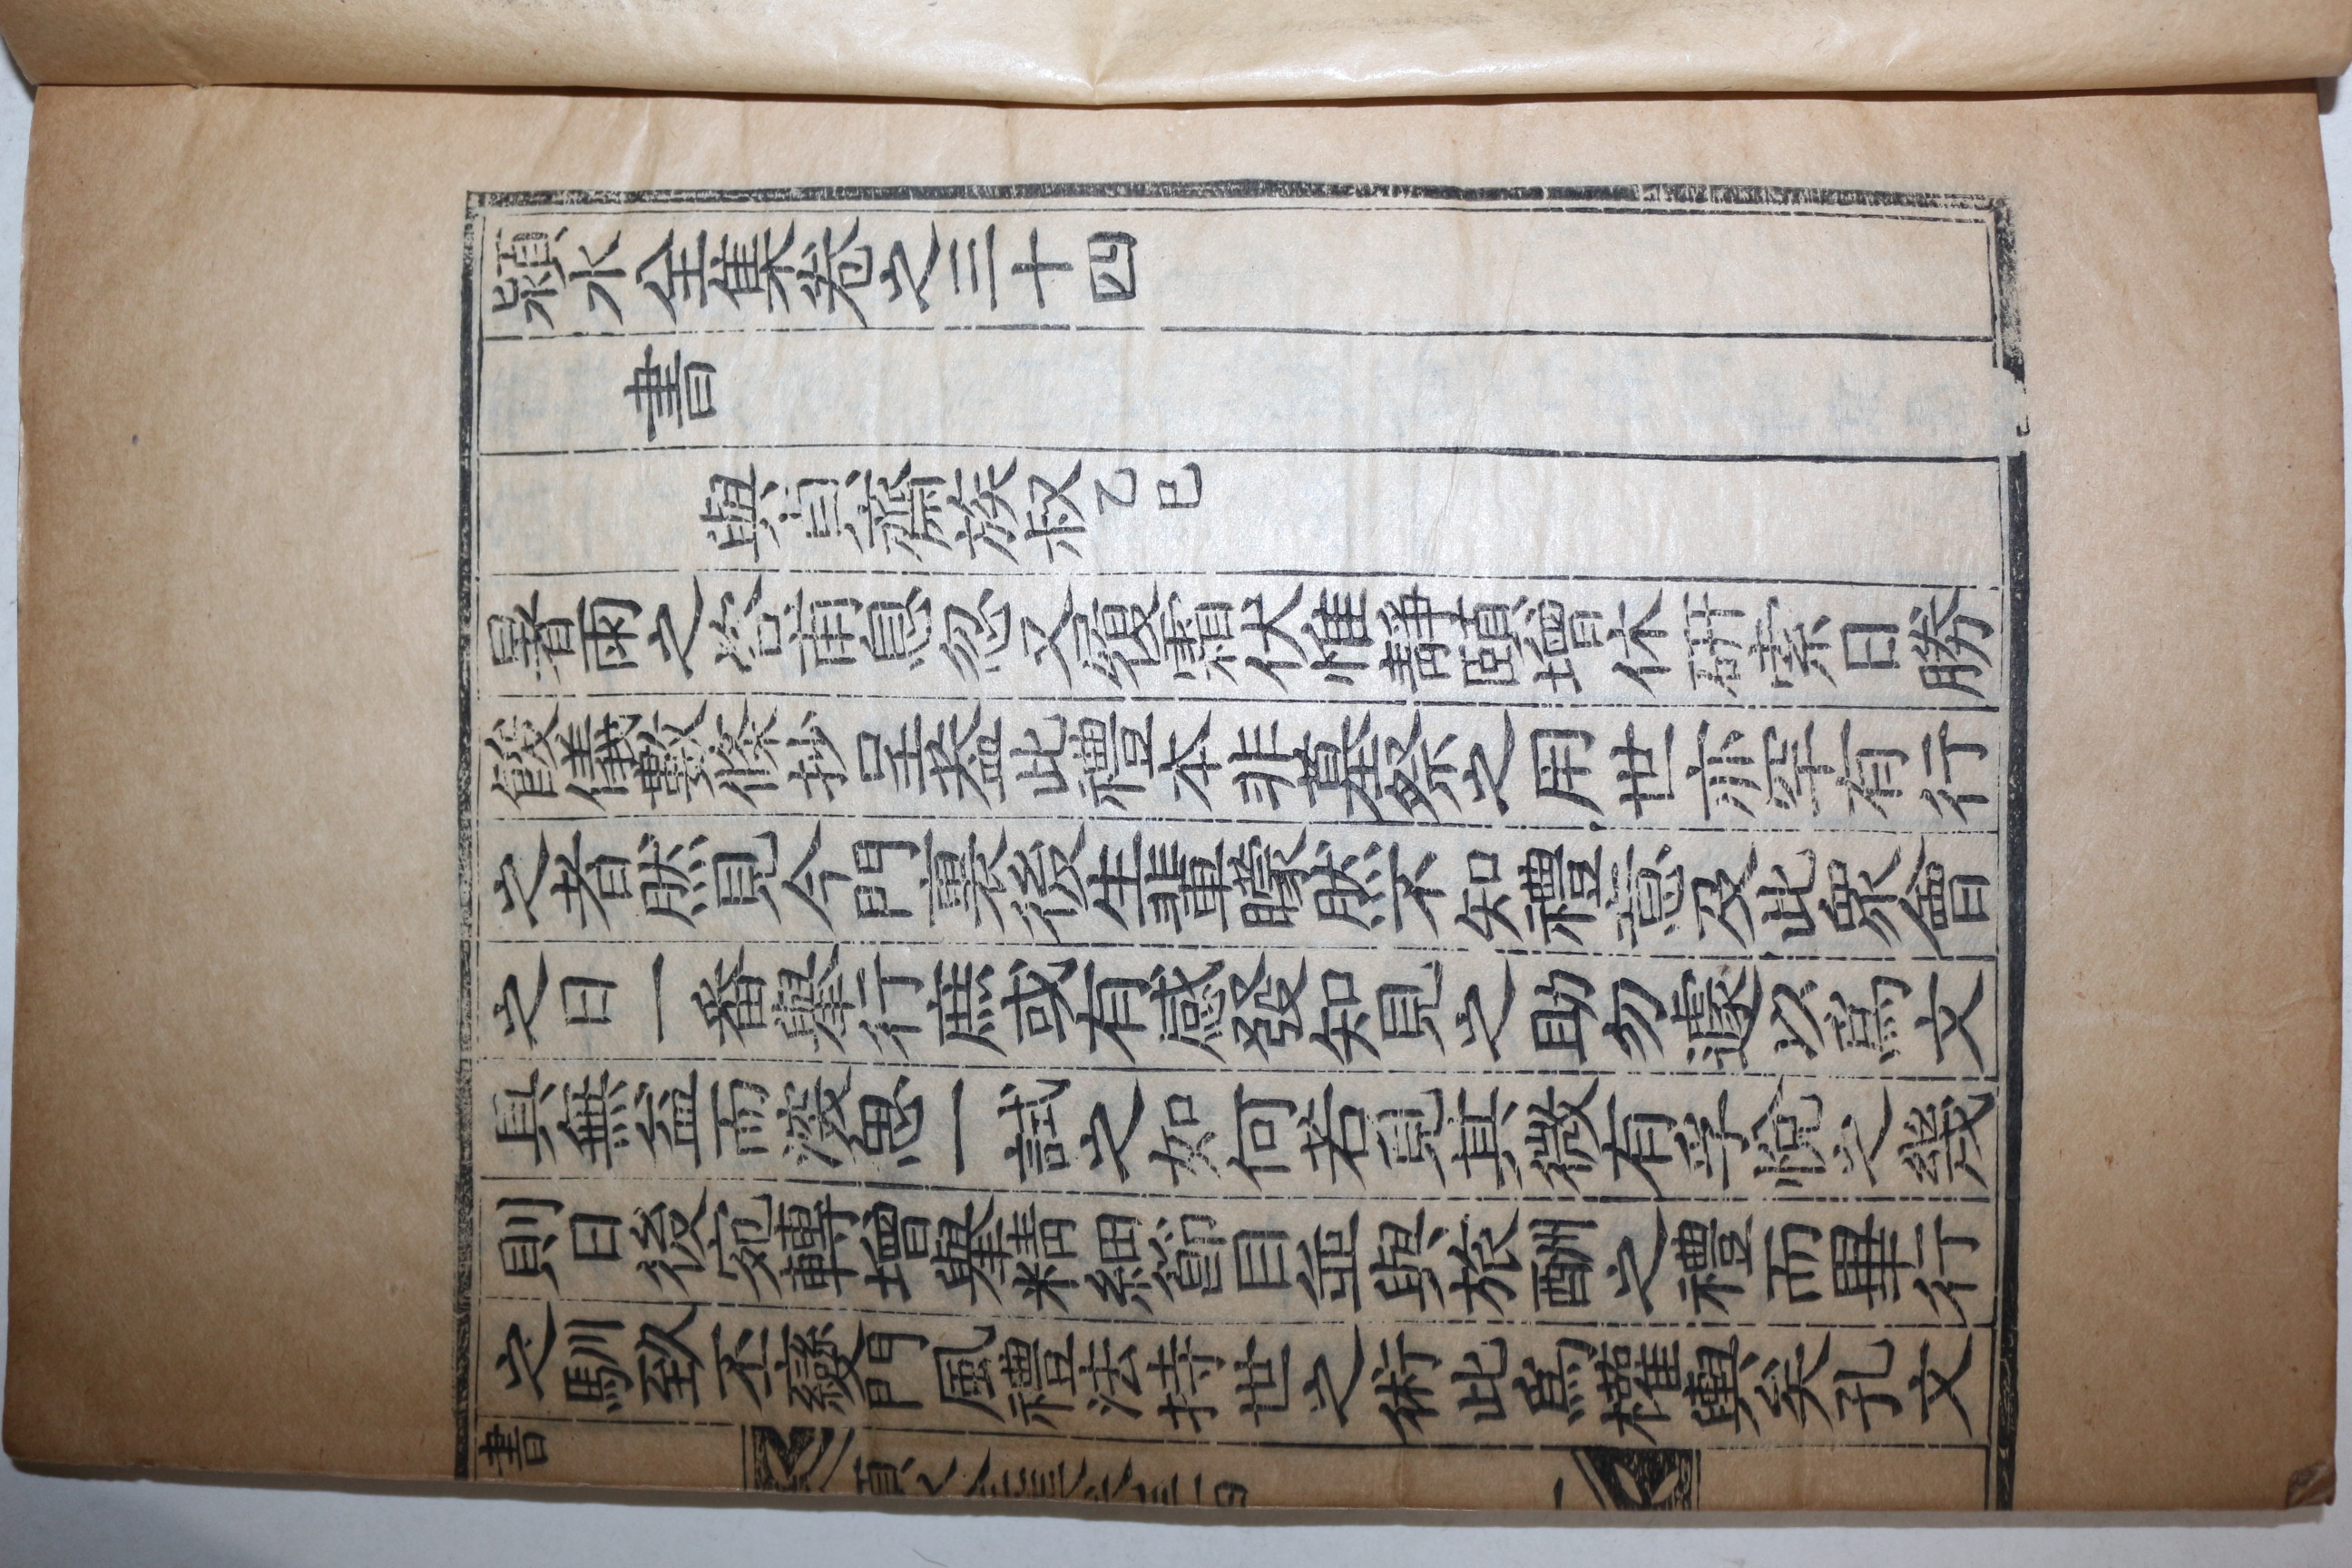 潁水全集卷之三十四
書
與貞齋族叔 乙巳
暑雨之咨甫息忽又履霜伏惟靜頤增休硏索日勝
餕儀數條抄呈盖此禮本非墓祭之用世亦罕有行
之者然見今門裏後生輩矇然不知禮意及此衆會
之日一番擧行庶或有感發知見之助勿遽以爲文
具無益而深思一試之如何若見其微有孚悅之幾
則日後宛轉增擧精細節目並與旅酬之禮而畢行
之馴致丕變門風禮法持世之術此爲權輿矣孔文
書